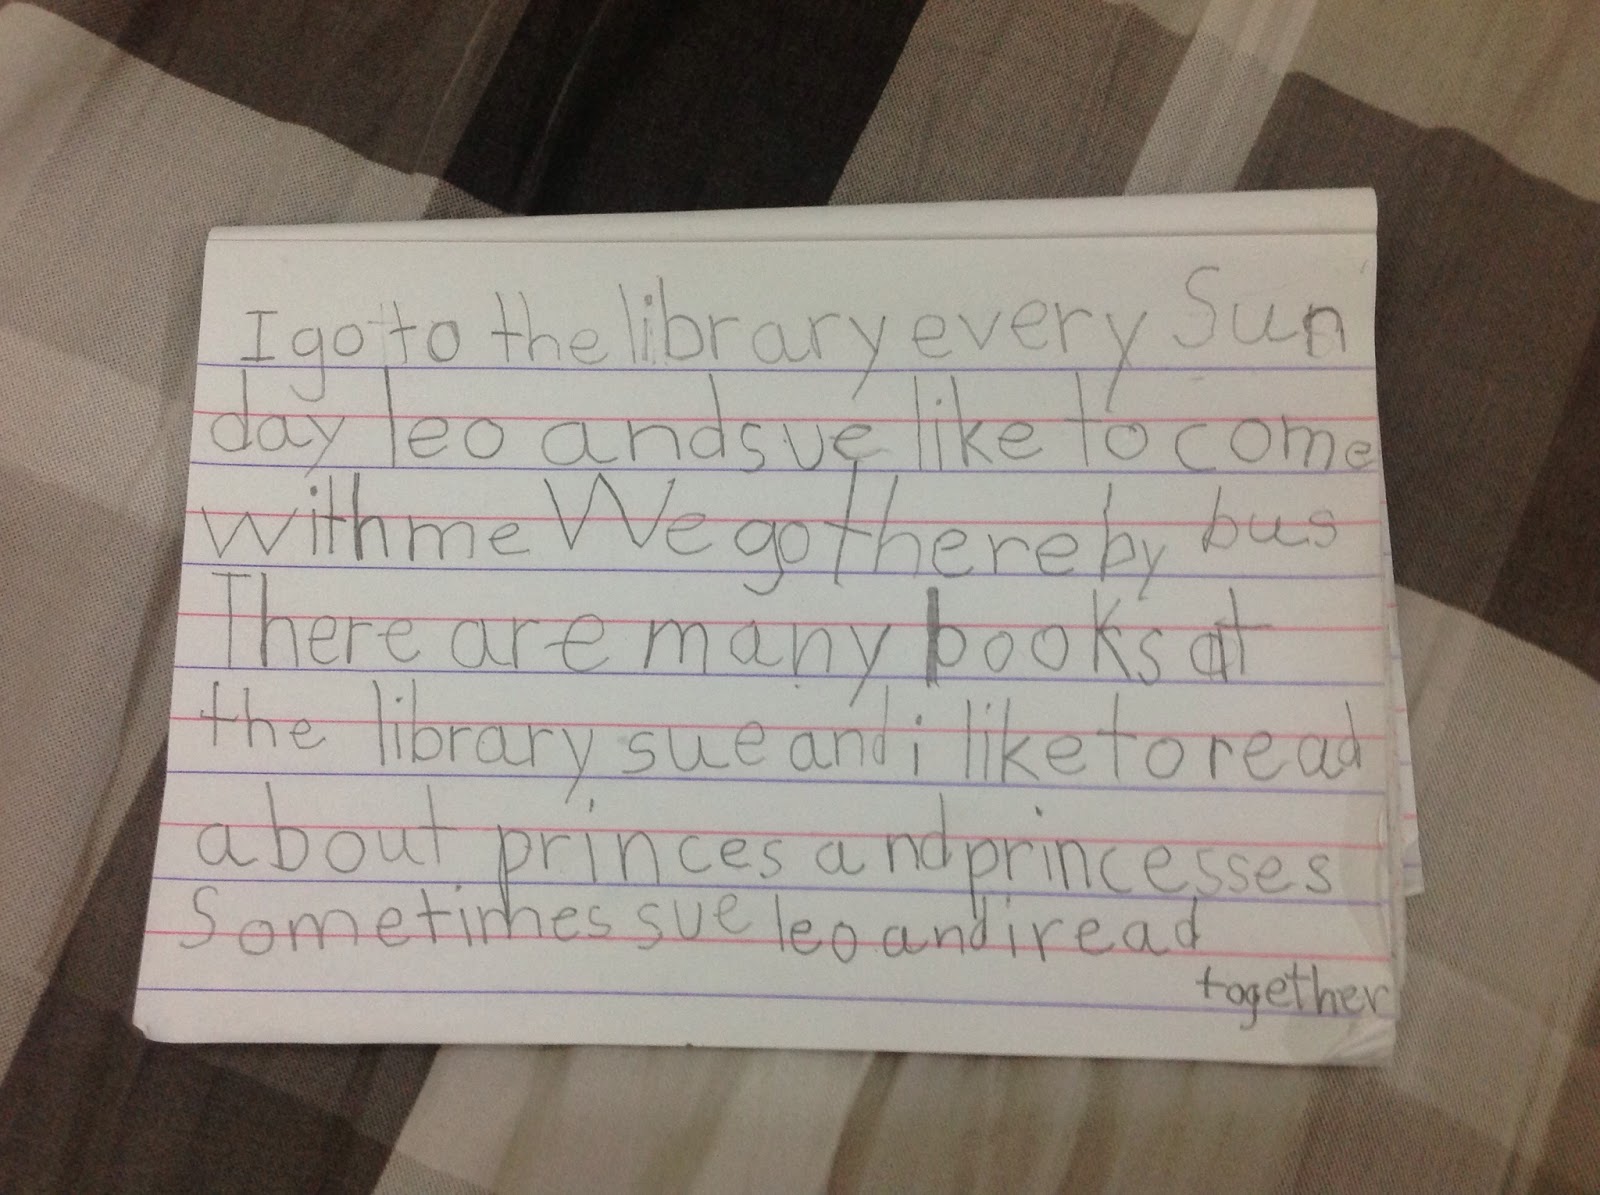 I go to the library every Sun
day leo and sue like to come
with me We go there by bus
There are many books at
the library sue and i like to read
about princes and princesses
Sometimes sue leo and i read
together